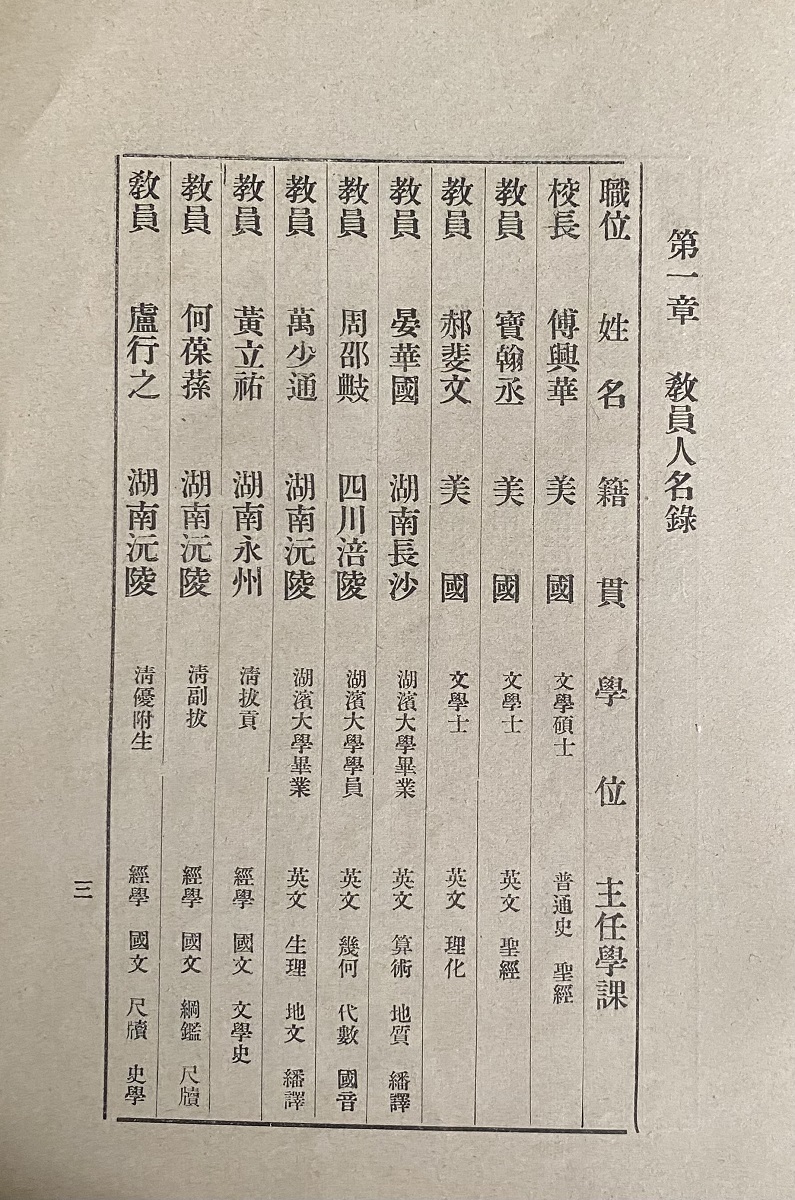 第一章 敎員人名錄
職位 姓名 籍貫 學位 主任學課
校長 傅興華 美國 文學碩士 普通史 聖經
敎員 寶翰丞 美國 文學士 英文 聖經
敎員 郝斐文 美國 文學士 英文 理化
敎員 晏華國 湖南長沙 湖濱大學畢業 英文 算術 地質 繙譯
敎員 周邵 四川涪陵 湖濱大學學員 英文 幾何 代數 國音
敎員 萬少通 湖南沅陵 湖濱大學畢業 英文 生理 地文 繙譯
敎員 黃立祐 湖南永州 淸拔貢 經學 國文 文學史
敎員 何葆蓀 湖南沅陵 淸副拔 經學 國文 綱鑑 尺牘
敎員 盧行之 湖南沅陵 淸優附生 經學 國文 尺牘 史學
三